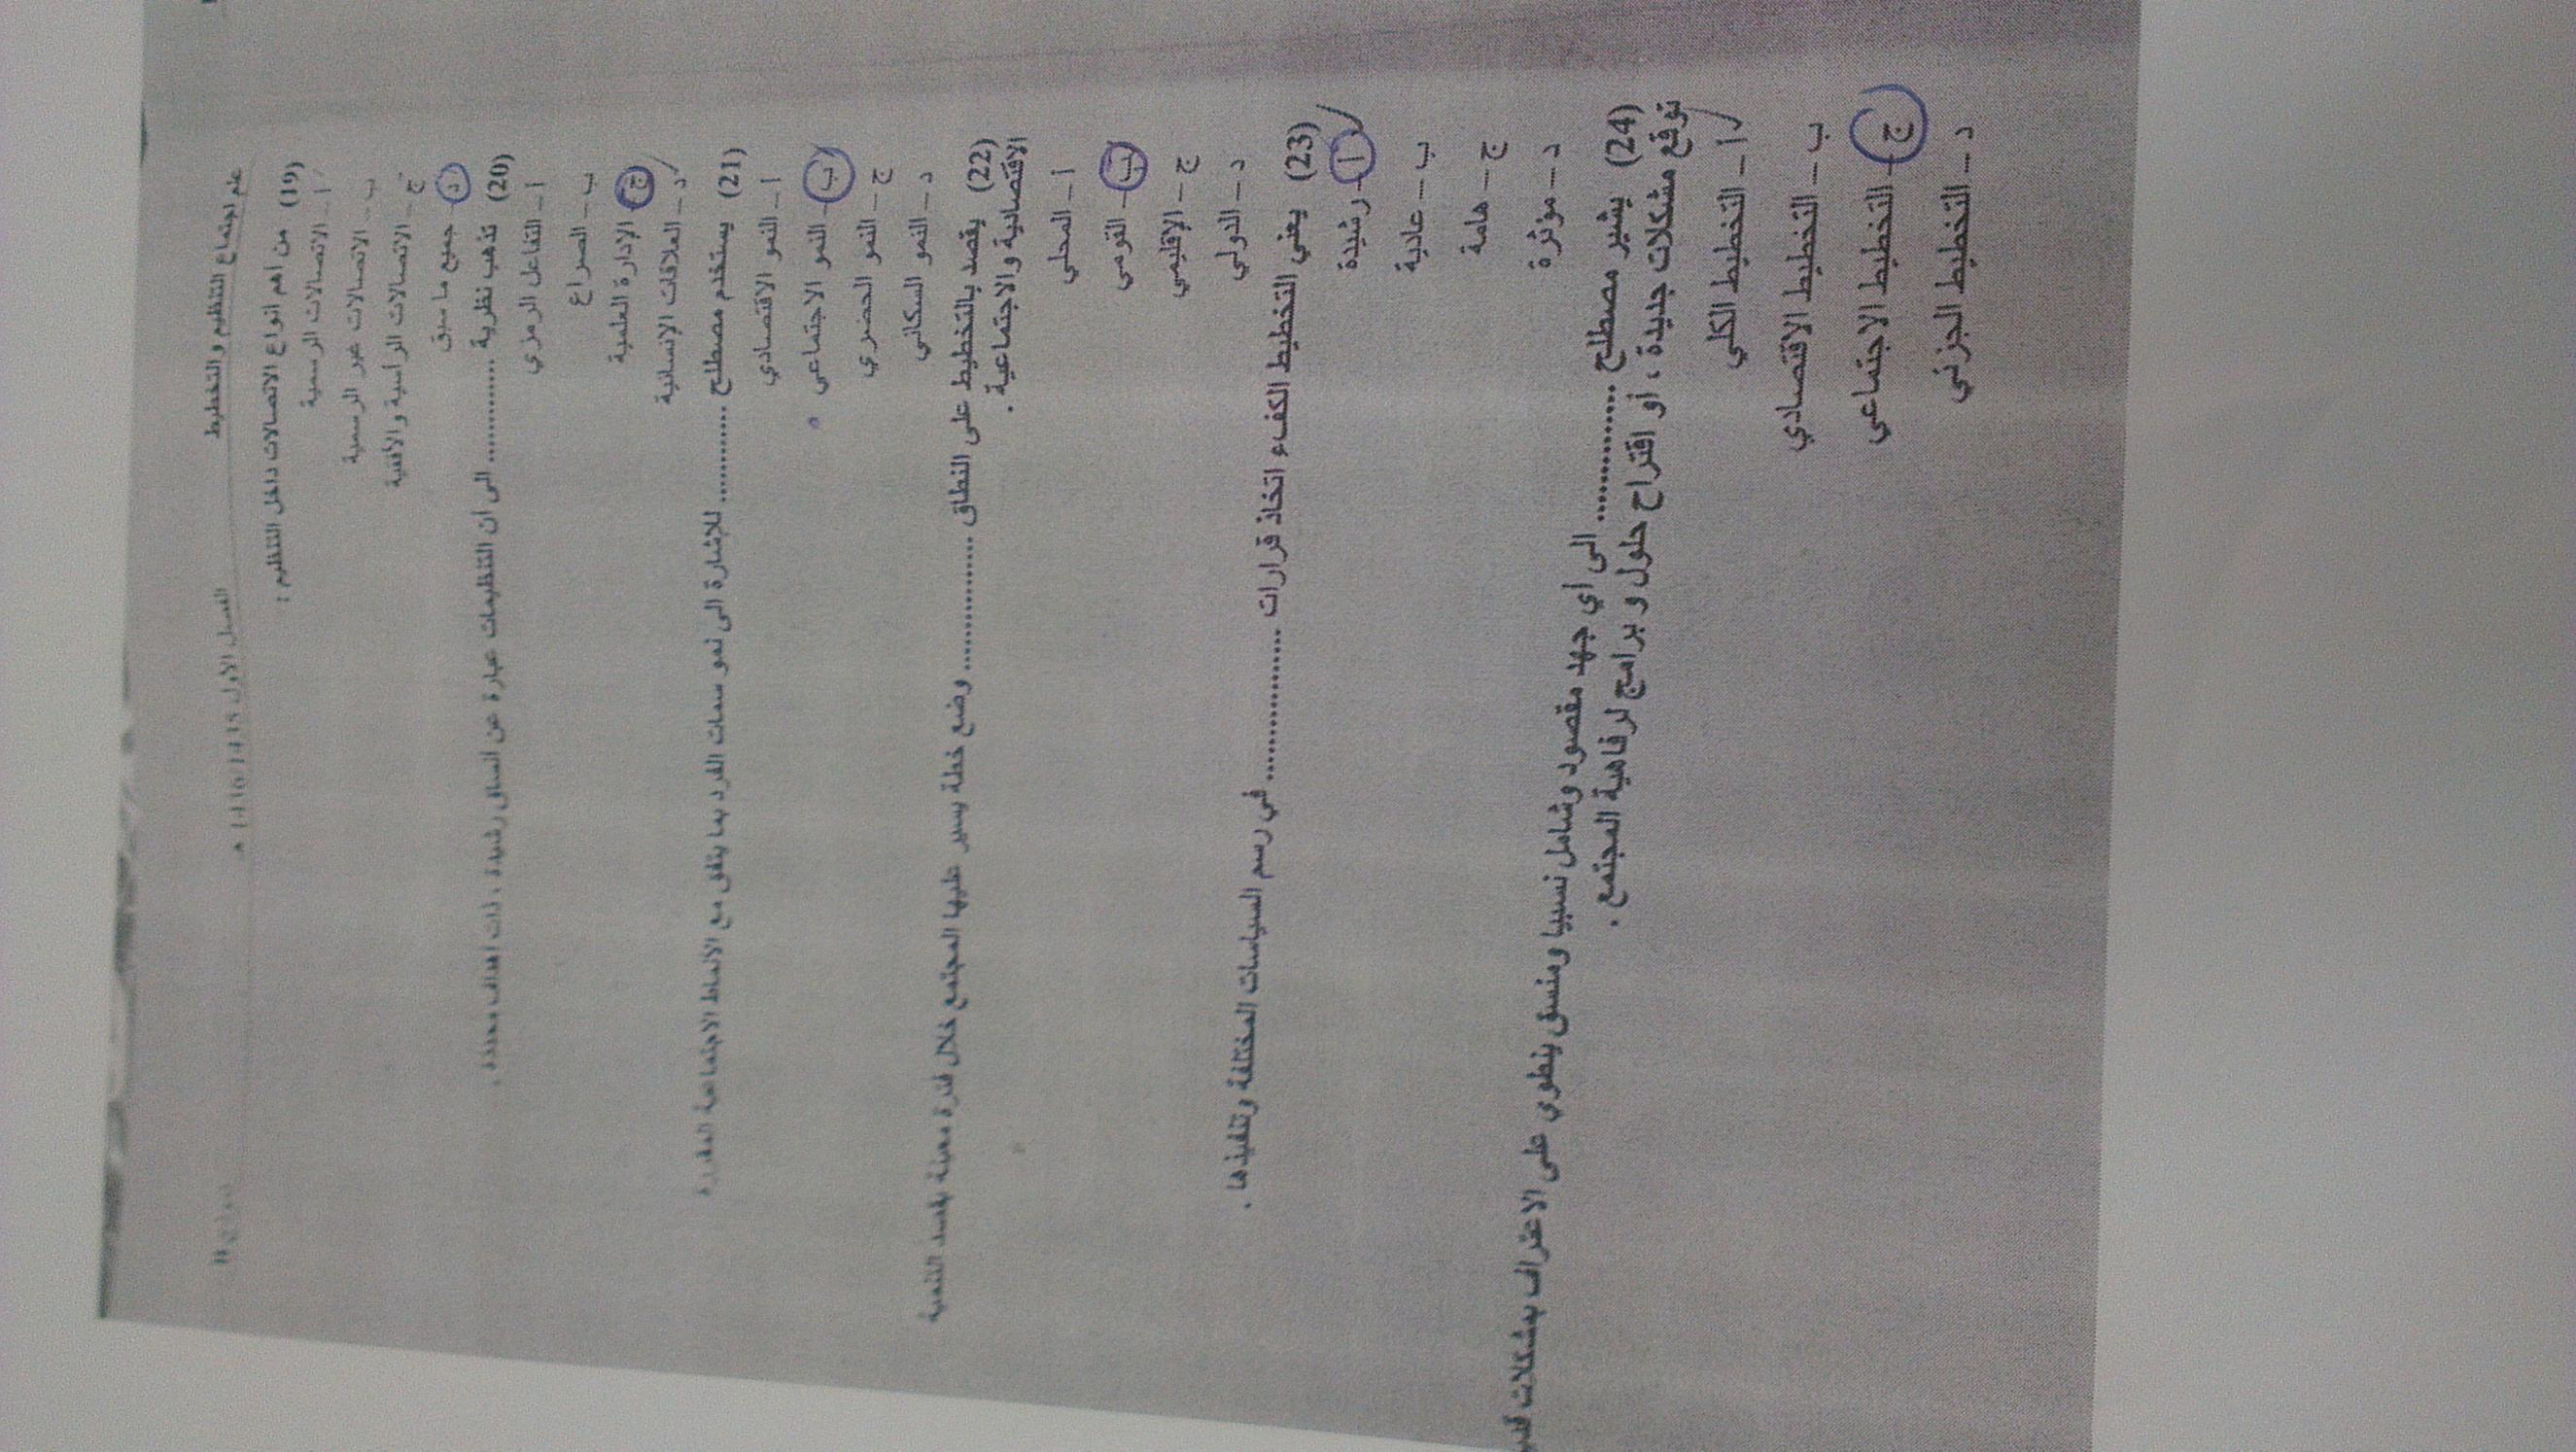 علم اجتماع التنظيم والتخطيط الفصل الاول 1435 / 1436 هـ
(19) من اهم انواع الاتصالات داخل التنظيم :
أ – الاتصالات الرسمية
ب – الاتصالات غير الرسمية
ج – الاتصالات الراسية والافقية
د – جميع ما سبق
(20) تذهب نظرية ............ الى ان التنظيمات عبارة عن انساق رشيدة ، ذات اهداف محددة .
أ – التفاعل الرمزي
ب – الصراع
ج – الإدارة العلمية
د – العلاقات الإنسانية
(21) يستخدم مصطلح ............ للإشارة الى نمو سمات الفرد بما يتفق مع الانماط الاجتماعية المقررة
أ – النمو الاقتصادي
ب – النمو الاجتماعي
ج – النمو الحضري
د – النمو السكاني
(22) يقصد بالتخطيط على النطاق ................ وضع خطة يسير عليها المجتمع خلال فترة معينة بقصد التنمية
الاقتصادية والاجتماعية .
أ – المحلي
ب – القومي
ج – الإقليمي
د – الدولي
(23) يعني التخطيط الكفء اتخاذ قرارات ................ في رسم السياسات المختلفة وتنفيذها .
أ – رشيدة
ب – عادية
ج – هامة
د – مؤثرة
(24) يشير مصطلح .............. الى اي جهد مقصود وشامل نسبيا ومنسق ينطوي على الاعتراف بمشكلات
توقع مشكلات جديدة ، أو اقتراح حلول و برامج لرفاهية المجتمع .
أ – التخطيط الكلي
ب – التخطيط الاقتصادي
ج – التخطيط الاجتماعي
د – التخطيط الجزئي